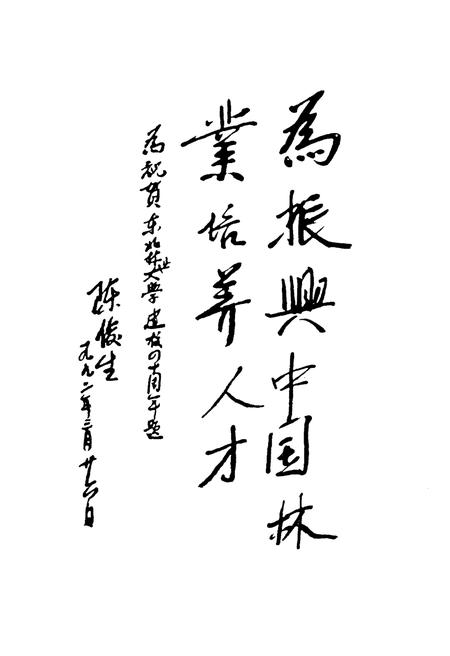 為振興中国林
業培养人才
为祝贺东北林业大学建校四十周年题
陈俊生
一九九二年三月廿六日